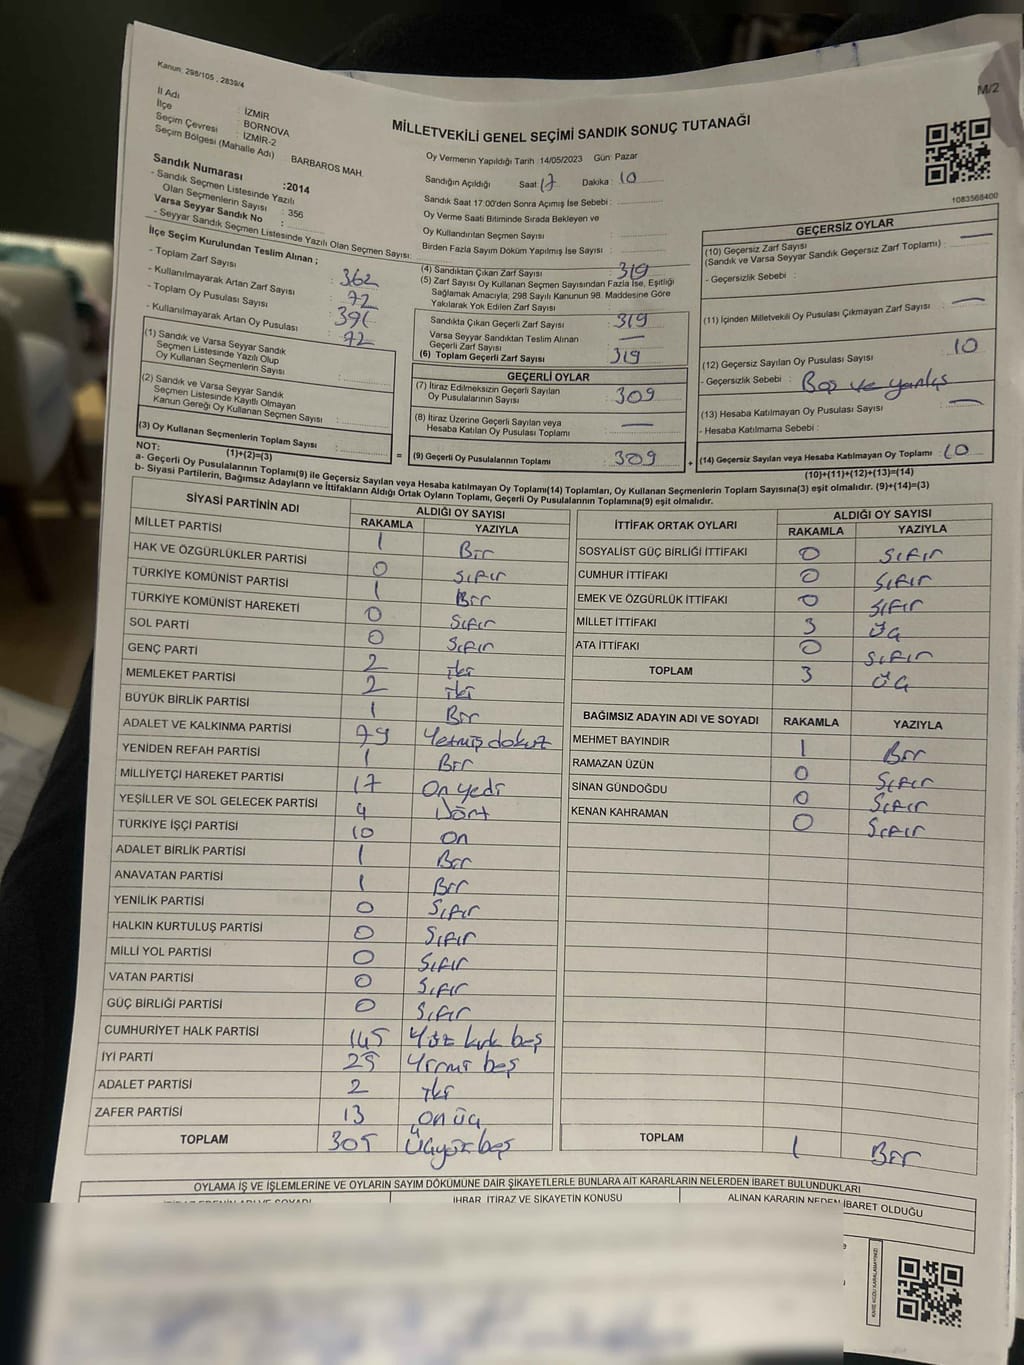 Kanun: 298/105 , 2839/4
M/2
İl Adı : İZMİR
İlçe : BORNOVA
Seçim Çevresi : İZMİR-2
Seçim Bölgesi (Mahalle Adı) BARBAROS MAH.
Sandık Numarası :2014
- Sandık Seçmen Listesinde Yazılı
Olan Seçmenlerin Sayısı : 356
Varsa Seyyar Sandık No :
- Seyyar Sandık Seçmen Listesinde Yazılı Olan Seçmen Sayısı:
İlçe Seçim Kurulundan Teslim Alınan ;
- Toplam Zarf Sayısı : 362
- Kullanılmayarak Artan Zarf Sayısı : 72
- Toplam Oy Pusulası Sayısı :
- Kullanılmayarak Artan Oy Pusulası : 72
(1) Sandık ve Varsa Seyyar Sandık
Seçmen Listesinde Yazılı Olup
Oy Kullanan Seçmenlerin Sayısı :
(2) Sandık ve Varsa Seyyar Sandık
Seçmen Listesinde Kayıtlı Olmayan
Kanun Gereği Oy Kullanan Seçmen Sayısı :
(3) Oy Kullanan Seçmenlerin Toplam Sayısı :
(1)+(2)=(3)
MİLLETVEKİLİ GENEL SEÇİMİ SANDIK SONUÇ TUTANAĞI
Oy Vermenin Yapıldığı Tarih :14/05/2023 Gün: Pazar
Sandığın Açıldığı Saat 17 Dakika : 10
Sandık Saat 17.00'den Sonra Açılmış İse Sebebi :
Oy Verme Saati Bitiminde Sırada Bekleyen ve
Oy Kullandırılan Seçmen Sayısı :
Birden Fazla Sayım Döküm Yapılmış İse Sayısı :
(4) Sandıktan Çıkan Zarf Sayısı : 319
(5) Zarf Sayısı Oy Kullanan Seçmen Sayısından Fazla İse, Eşitliği
Sağlamak Amacıyla, 298 Sayılı Kanunun 98. Maddesine Göre
Yakılarak Yok Edilen Zarf Sayısı :
Sandıkta Çıkan Geçerli Zarf Sayısı : 319
Varsa Seyyar Sandıktan Teslim Alınan
Geçerli Zarf Sayısı : —
(6) Toplam Geçerli Zarf Sayısı : 319
GEÇERLİ OYLAR
(7) İtiraz Edilmeksizin Geçerli Sayılan
Oy Pusulalarının Sayısı : 309
(8) İtiraz Üzerine Geçerli Sayılan veya
Hesaba Katılan Oy Pusulası Toplamı : —
= (9) Geçerli Oy Pusulalarının Toplamı : 309
1083568400
GEÇERSİZ OYLAR
(10) Geçersiz Zarf Sayısı
(Sandık ve Varsa Seyyar Sandık Geçersiz Zarf Toplamı) : —
- Geçersizlik Sebebi :
(11) İçinden Milletvekili Oy Pusulası Çıkmayan Zarf Sayısı : —
(12) Geçersiz Sayılan Oy Pusulası Sayısı : 10
- Geçersizlik Sebebi : Boş ve yanlış
(13) Hesaba Katılmayan Oy Pusulası Sayısı : —
- Hesaba Katılmama Sebebi :
+ (14) Geçersiz Sayılan veya Hesaba Katılmayan Oy Toplamı : 10
(10)+(11)+(12)+(13)=(14)
NOT:
a- Geçerli Oy Pusulalarının Toplamı(9) ile Geçersiz Sayılan veya Hesaba katılmayan Oy Toplamı(14) Toplamları, Oy Kullanan Seçmenlerin Toplam Sayısına(3) eşit olmalıdır. (9)+(14)=(3)
b- Siyasi Partilerin, Bağımsız Adayların ve İttifakların Aldığı Ortak Oyların Toplamı, Geçerli Oy Pusulalarının Toplamına(9) eşit olmalıdır.
SİYASİ PARTİNİN ADI ALDIĞI OY SAYISI
RAKAMLA YAZIYLA
MİLLET PARTİSİ 1 Bir
HAK VE ÖZGÜRLÜKLER PARTİSİ 0 Sıfır
TÜRKİYE KOMÜNİST PARTİSİ 1 Bir
TÜRKİYE KOMÜNİST HAREKETİ 0 Sıfır
SOL PARTİ 0 Sıfır
GENÇ PARTİ 2 iki
MEMLEKET PARTİSİ 2 iki
BÜYÜK BİRLİK PARTİSİ 1 Bir
ADALET VE KALKINMA PARTİSİ 79 Yetmiş dokuz
YENİDEN REFAH PARTİSİ 1 Bir
MİLLİYETÇİ HAREKET PARTİSİ 17 On yedi
YEŞİLLER VE SOL GELECEK PARTİSİ 4 Dört
TÜRKİYE İŞÇİ PARTİSİ 10 On
ADALET BİRLİK PARTİSİ 1 Bir
ANAVATAN PARTİSİ 1 Bir
YENİLİK PARTİSİ 0 Sıfır
HALKIN KURTULUŞ PARTİSİ 0 Sıfır
MİLLİ YOL PARTİSİ 0 Sıfır
VATAN PARTİSİ 0 Sıfır
GÜÇ BİRLİĞİ PARTİSİ 0 Sıfır
CUMHURİYET HALK PARTİSİ 145 Yüz kırk beş
İYİ PARTİ 25 Yirmi beş
ADALET PARTİSİ 2 iki
ZAFER PARTİSİ 13 On üç
TOPLAM 305 Üçyüz beş
İTTİFAK ORTAK OYLARI ALDIĞI OY SAYISI
RAKAMLA YAZIYLA
SOSYALİST GÜÇ BİRLİĞİ İTTİFAKI 0 Sıfır
CUMHUR İTTİFAKI 0 Sıfır
EMEK VE ÖZGÜRLÜK İTTİFAKI 0 Sıfır
MİLLET İTTİFAKI 3 Üç
ATA İTTİFAKI 0 Sıfır
TOPLAM 3 Üç
BAĞIMSIZ ADAYIN ADI VE SOYADI RAKAMLA YAZIYLA
MEHMET BAYINDIR 1 Bir
RAMAZAN ÜZÜN 0 Sıfır
SİNAN GÜNDOĞDU 0 Sıfır
KENAN KAHRAMAN 0 Sıfır
TOPLAM 1 Bir
OYLAMA İŞ VE İŞLEMLERİNE VE OYLARIN SAYIM DÖKÜMÜNE DAİR ŞİKAYETLERLE BUNLARA AİT KARARLARIN NELERDEN İBARET BULUNDUKLARI
İHBAR, İTİRAZ VE ŞİKAYETİN KONUSU ALINAN KARARIN NEDEN İBARET OLDUĞU